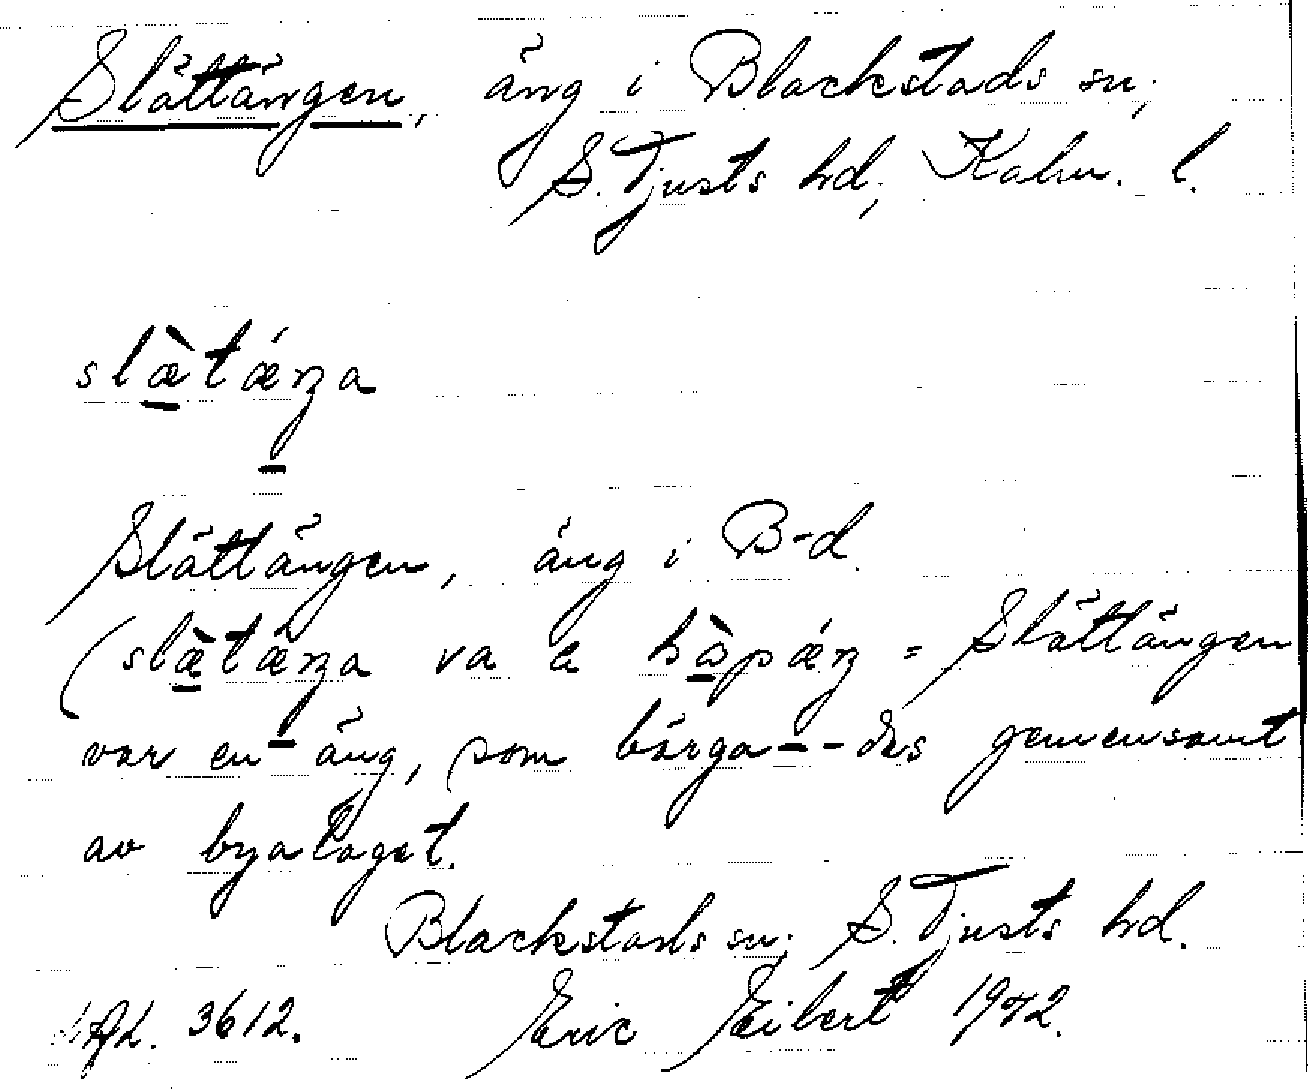 Slättängen, äng i Blackstads sn;
S. Tjusts hd; Kalm. l.
slæ̀tǽŋa
Slättängen, äng i B-d.
(slæ̀tǽŋa va e hòpǽŋ = Slättängen
var en äng, som bärga--des gemensamt
av byalaget.
Blackstads sn; S. Tjusts hd.
3612. Eric Eibert 1942.